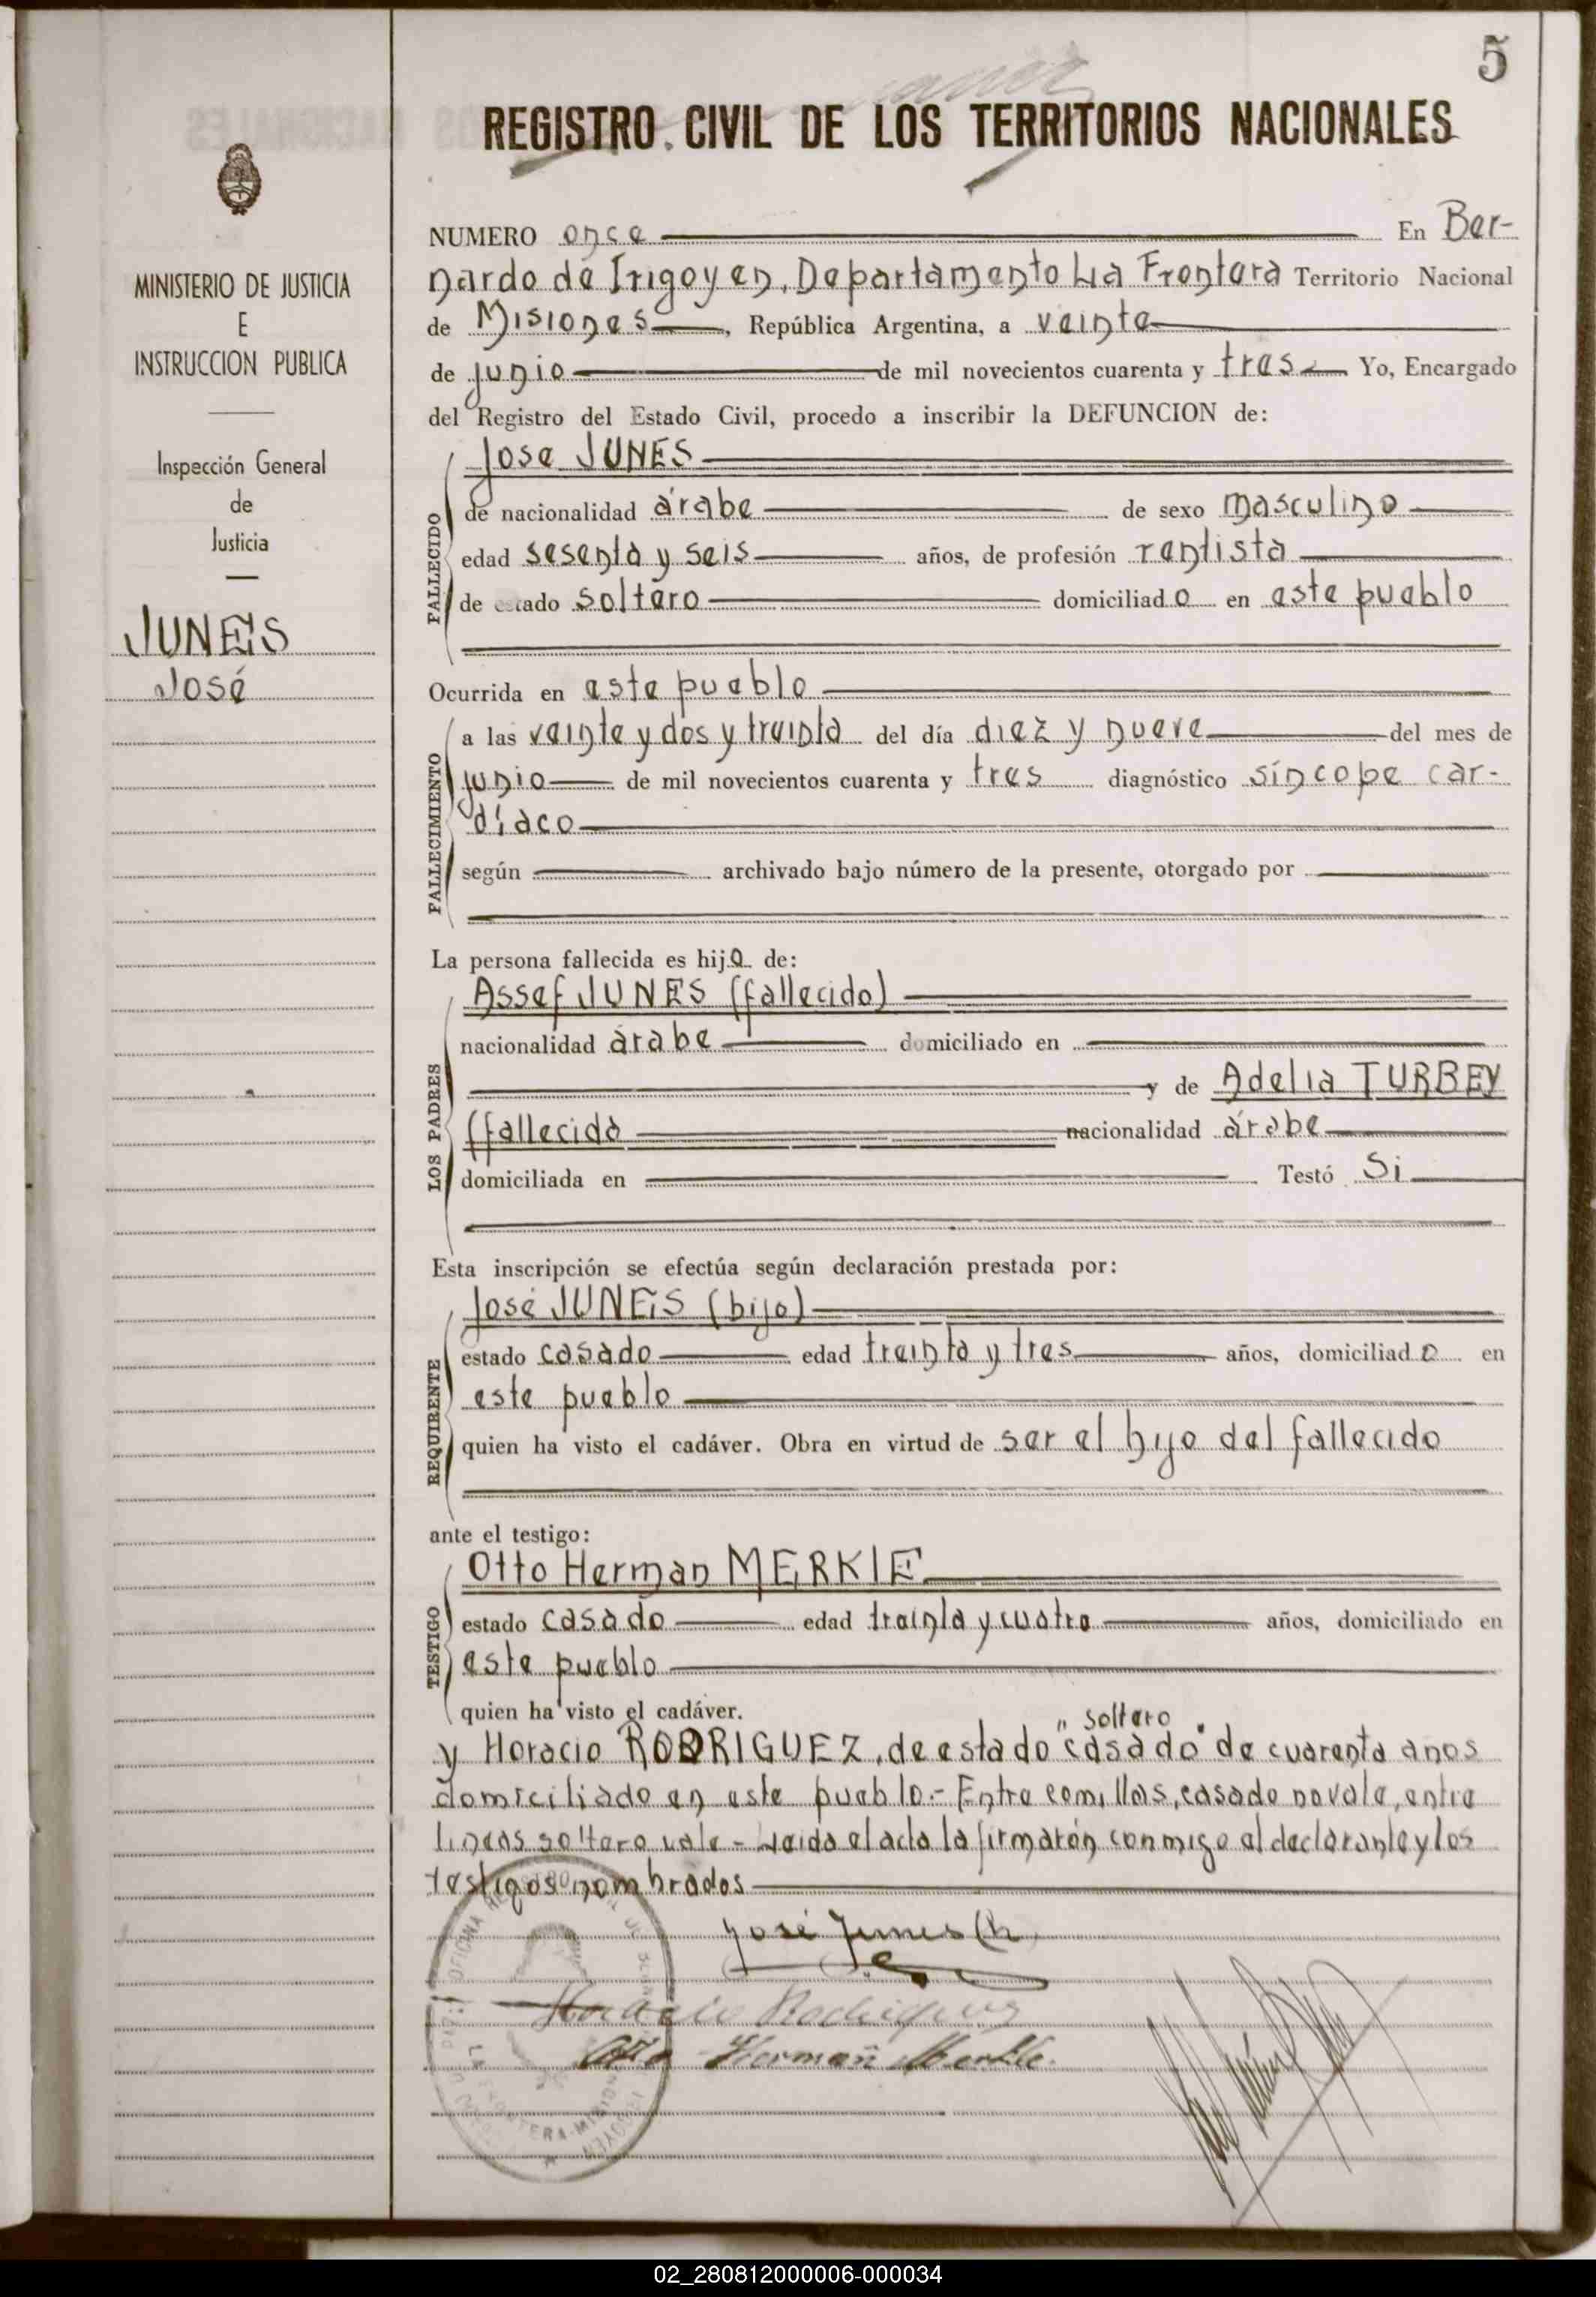 5
REGISTRO CIVIL DE LOS TERRITORIOS NACIONALES
MINISTERIO DE JUSTICIA
E
INSTRUCCION PUBLICA
Inspección General
de
Justicia
JUNEIS
José
NUMERO once En Ber-
nardo de Irigoyen, Departamento La Frontera Territorio Nacional
de Misiones, República Argentina, a veinte
de junio de mil novecientos cuarenta y tres Yo, Encargado
del Registro del Estado Civil, procedo a inscribir la DEFUNCION de:
FALLECIDO
Jose JUNES
de nacionalidad árabe de sexo masculino
edad sesenta y seis años, de profesión rentista
de estado soltero domiciliado en este pueblo
Ocurrida en este pueblo
FALLECIMIENTO
a las veinte y dos y treinta del día diez y nueve del mes de
junio de mil novecientos cuarenta y tres diagnóstico síncope car-
díaco
según archivado bajo número de la presente, otorgado por
La persona fallecida es hijo de:
LOS PADRES
Assef JUNES (fallecido)
nacionalidad árabe domiciliado en
y de Adelia TURBEY
(fallecida nacionalidad árabe
domiciliada en Testó Si
Esta inscripción se efectúa según declaración prestada por:
REQUIRENTE
José JUNEIS (hijo)
estado casado edad treinta y tres años, domiciliado en
este pueblo
quien ha visto el cadáver. Obra en virtud de ser el hijo del fallecido
ante el testigo:
TESTIGO
Otto Herman MERKLE
estado casado edad treinta y cuatro años, domiciliado en
este pueblo
quien ha visto el cadáver.
soltero
y Horacio RODRIGUEZ, de estado "casado" de cuarenta anos
domiciliado en este pueblo.- Entre comillas, casado no vale, entre
lineas soltero vale - Leida el acta la firmaron conmigo el declarante y los
testigos nombrados
José Junes (h)
Horacio Rodriguez
Otto Herman Merkle.
02_280812000006-000034